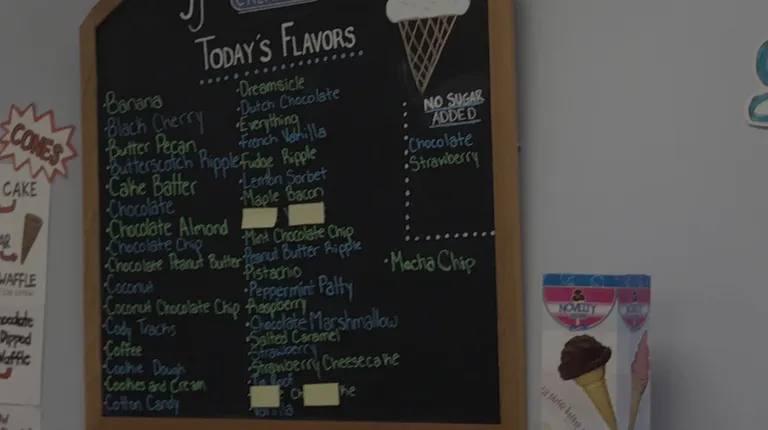 TODAY'S FLAVORS
Banana
Black Cherry
Butter Pecan
Butterscotch Ripple
Cake Batter
Chocolate
Chocolate Almond
Chocolate Chip
Chocolate Peanut Butter
Coconut
Coconut Chocolate Chip
Cody Trachs
Coffee
Cookie Dough
Cookies and Cream
Cotton Candy
Dreamsicle
Dutch Chocolate
Everything
French Vanilla
Fudge Ripple
Lemon Sorbet
Maple Bacon
Mint Chocolate Chip
Peanut Butter Ripple
Pistachio
Peppermint Patty
Raspberry
Chocolate Marshmallow
Salted Caramel
Strawberry
Strawberry Cheesecake
Vanilla
NO SUGAR
ADDED
Chocolate
Strawberry
Mocha Chip
CONES
CAKE
WAFFLE
Dipped
Waffle
NOVELTY